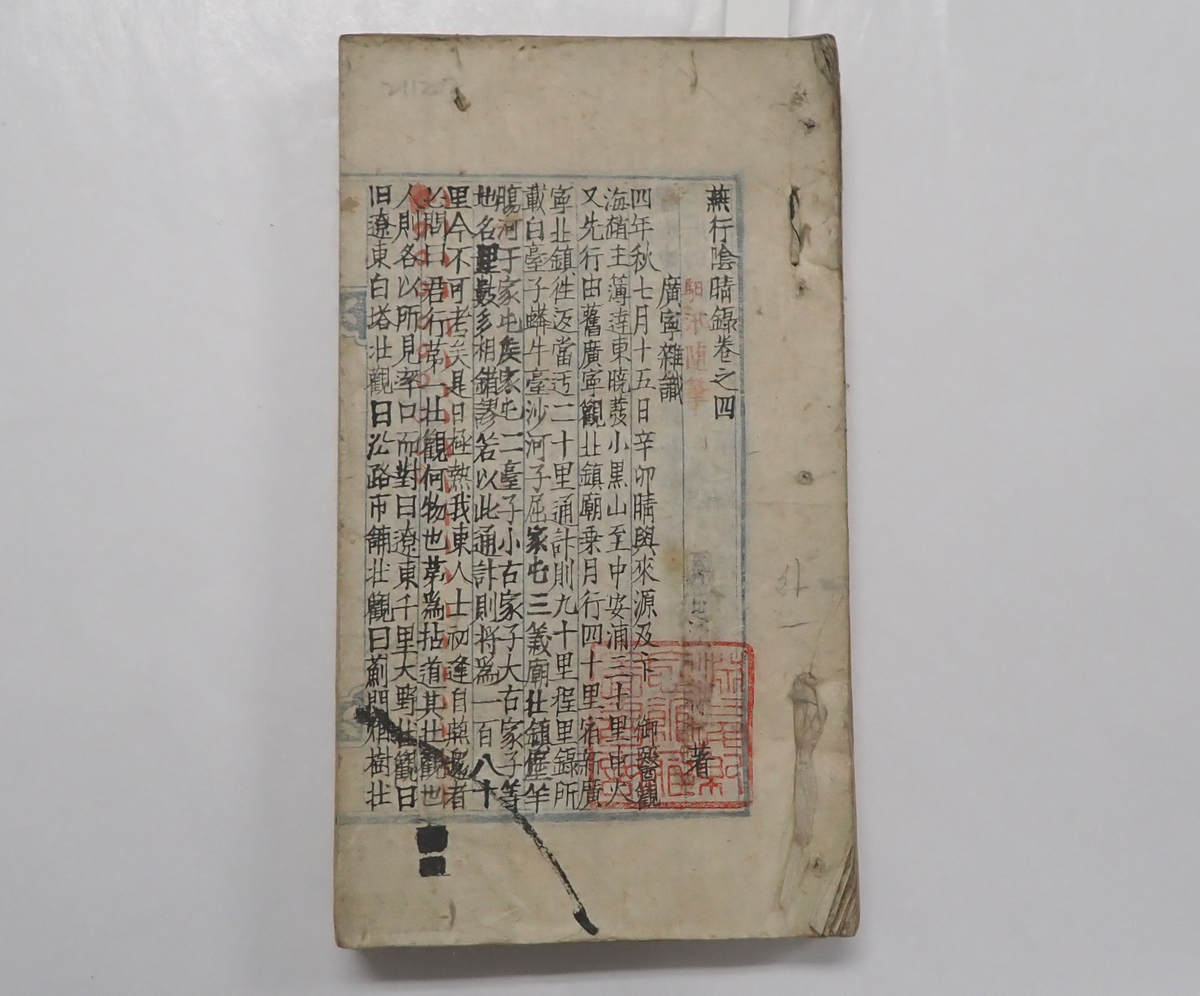 燕行陰晴錄卷之四
馹汛随筆
著
廣寧雜識
四年秋七月十五日辛卯晴與來源及卞 御醫觀
海趙主簿達東曉發小黑山至中安浦三十里中火
又先行由舊廣寧觀北鎮廟乘月行四十里宿新廣
寧北鎮徃返當迂二十里通計則九十里程里錄所
載白臺子蟒牛臺沙河子屈家屯三義廟北鎮堡羊
膓河于家屯矦家屯二臺子小右家子大右家子等
地名里數多相錯謬若以此通計則将為一百八十
里今不可考矣是日極熱我東人士初逢自燕還者
必問曰君行第一壯觀何物也第為拈道其壯觀也
人則各以所見率口而對曰遼東千里大野壯觀曰
旧遼東白塔壯觀日㳂路市鋪壯觀曰薊門烟樹壯